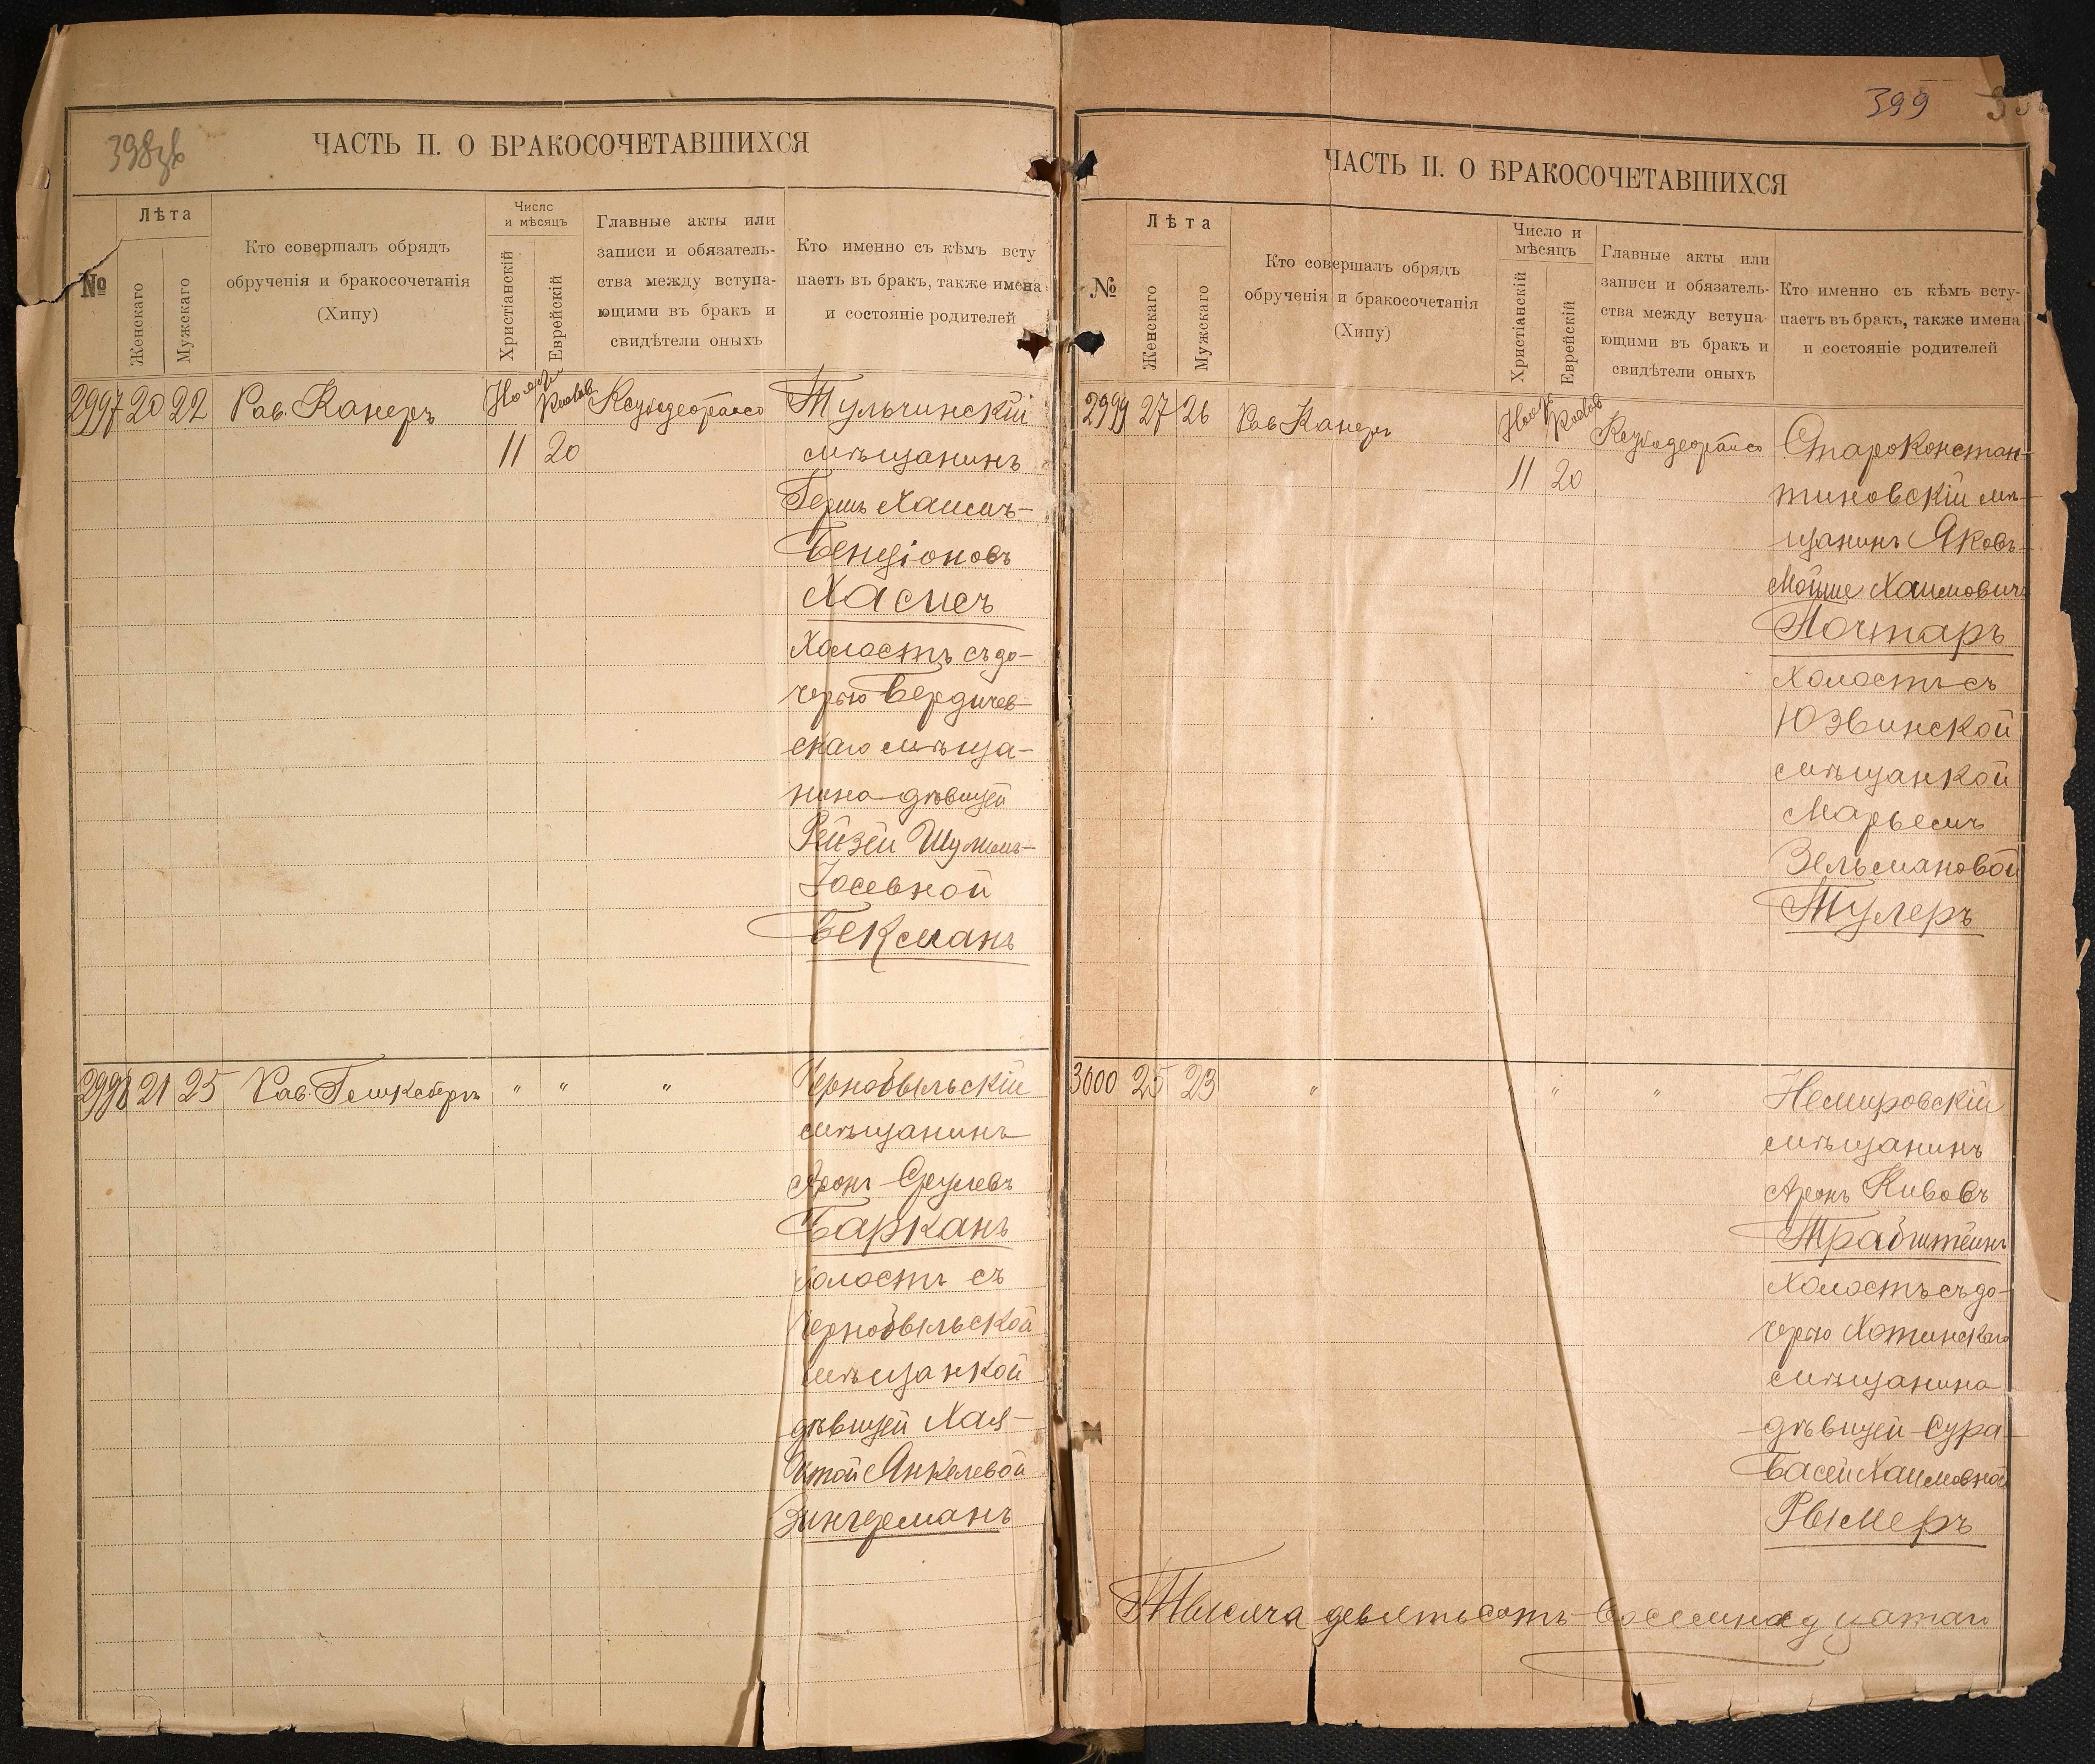 398
ЧАСТЬ II. О БРАКОСОЧЕТАВШИХСЯ
№
Лѣта
Женскаго
Мужскаго
Кто совершалъ обрядъ
обрученія и бракосочетанія
(Хипу)
Число
и мѣсяцъ
Христіанскій
Еврейскій
Главные акты или
записи и обязатель-
ства между вступа-
ющими въ бракъ и
свидѣтели оныхъ
Кто именно съ кѣмъ всту
паетъ въ бракъ, также имена
и состояніе родителей
2997 20 22 Рав. Канеръ
11 20
Тульчинскій
мѣщанинъ
Гершъ Хаимъ-
Бенціоновъ
Хасисъ
Холостъ съ до-
черью Бердичев-
скаго мѣща-
нина дѣвицей
Рейзей Шулимъ-
Іосевной
Бекманъ
2998 21 25 Рав. " " "
Чернобыльскій
мѣщанинъ
Аронъ Срулевъ
Барканъ
холостъ съ
Чернобыльской
мѣщанкой
дѣвицей Хая-
Итой Янкелевой
Зингерманъ
399
ЧАСТЬ II. О БРАКОСОЧЕТАВШИХСЯ
№
Лѣта
Женскаго
Мужскаго
Кто совершалъ обрядъ
обрученія и бракосочетанія
(Хипу)
Число и
мѣсяцъ
Христіанскій
Еврейскій
Главные акты или
записи и обязатель-
ства между вступа-
ющими въ бракъ и
свидѣтели оныхъ
Кто именно съ кѣмъ всту-
паетъ въ бракъ, также имена
и состояніе родителей
2999 27 26 Рав Канеръ
11 20
Староконстан-
тиновскій мѣ-
щанинъ Яковъ-
Мойше Хаимовичъ
Почтаръ
Холостъ съ
Юзвинской
мѣщанкой
Марьемъ
Зельмановой
Тулеръ
3000 25 23 " " " "
Немировскій
мѣщанинъ
Аронъ Кивовъ
Трабштейнъ
Холостъ съ до-
черью Хотинскаго
мѣщанина
дѣвицей Сура-
Басей Хаимовной
Рымеръ
Тысяча девятьсотъ восемнадцатаго